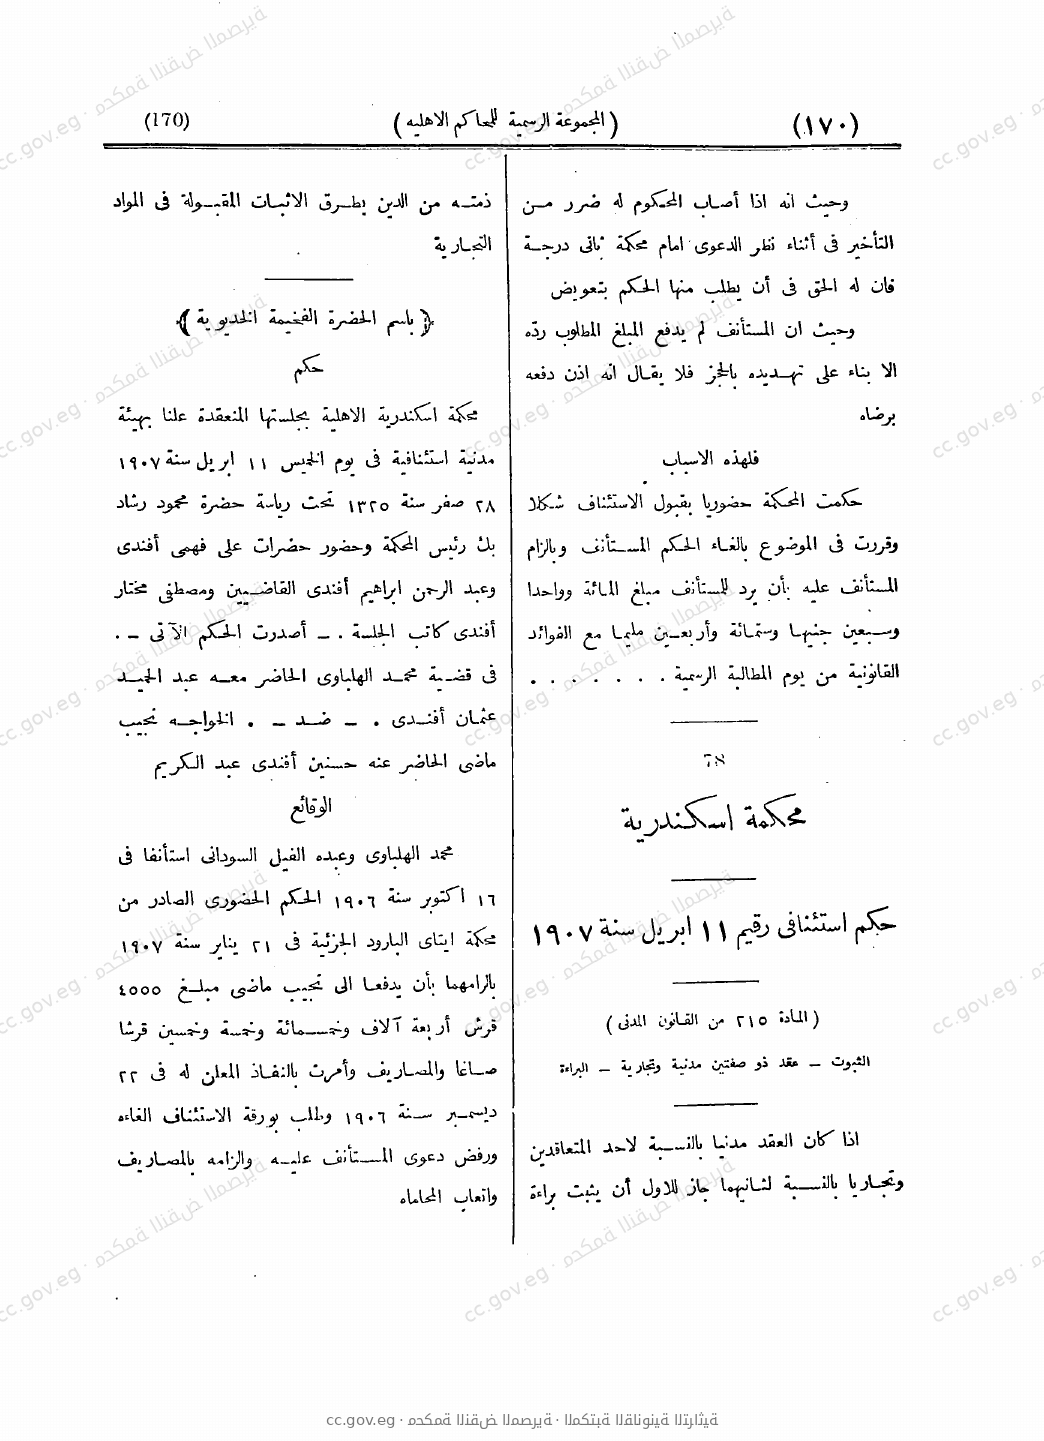 (١٧٠)
(المجموعة الرسمية للمحاكم الاهلية)
(170)
وحيث انه اذا أصاب المحكوم له ضرر من
التأخير فى أثناء نظر الدعوى امام محكمة ثانى درجة
فان له الحق فى أن يطلب منها الحكم بتعويض
وحيث ان المستأنف لم يدفع المبلغ المطلوب ردّه
الا بناء على تهديده بالحجز فلا يقال انه اذن دفعه
برضاه
فلهذه الاسباب
حكمت المحكمة حضوريا بقبول الاستئناف شكلا
وقررت فى الموضوع بالغاء الحكم المستأنف وبالزام
المستأنف عليه بأن يرد للمستأنف مبلغ المائة وواحدا
وسبعين جنيها وستمائة وأربعين مليما مع الفوائد
القانونية من يوم المطالبة الرسمية . . . . . . .
٦٨
محكمة اسكندرية
حكم استئنافى رقيم ١١ ابريل سنة ١٩٠٧
(المادة ٢١٥ من القانون المدنى)
الثبوت – عقد ذو صفتين مدنية وتجارية – البراءة
اذا كان العقد مدنيا بالنسبة لاحد المتعاقدين
وتجاريا بالنسبة لثانيهما جاز للاول أن يثبت براءة
ذمته من الدين بطرق الاثبات المقبولة فى المواد
التجارية
﴿باسم الحضرة الفخيمة الخديوية﴾
حكم
محكمة اسكندرية الاهلية بجلستها المنعقدة علنا بهيئة
مدنية استئنافية فى يوم الخميس ١١ ابريل سنة ١٩٠٧
٢٨ صفر سنة ١٣٢٥ تحت رياسة حضرة محمود رشاد
بك رئيس المحكمة وحضور حضرات على فهمى أفندى
وعبد الرحمن ابراهيم أفندى القاضيين ومصطفى مختار
أفندى كاتب الجلسة . – أصدرت الحكم الآتى – .
فى قضية محمد الهلباوى الحاضر معه عبد الحميد
عثمان أفندى . – ضد – . الخواجه نجيب
ماضى الحاضر عنه حسنين أفندى عبد الكريم
الوقائع
محمد الهلباوى وعبده الفيل السودانى استأنفا فى
١٦ اكتوبر سنة ١٩٠٦ الحكم الحضورى الصادر من
محكمة ايتاى البارود الجزئية فى ٢١ يناير سنة ١٩٠٧
بالزامهما بأن يدفعا الى نجيب ماضى مبلغ ٤٥٥٥
قرش أربعة آلاف وخمسمائة وخمسة وخمسين قرشا
صاغا والمصاريف وأمرت بالنفاذ المعلن له فى ٢٢
ديسمبر سنة ١٩٠٦ وطلب بورقة الاستئناف الغاءه
ورفض دعوى المستأنف عليه والزامه بالمصاريف
واتعاب المحاماه
cc.gov.eg · محكمة النقض المصرية · المكتبة القانونية التراثية